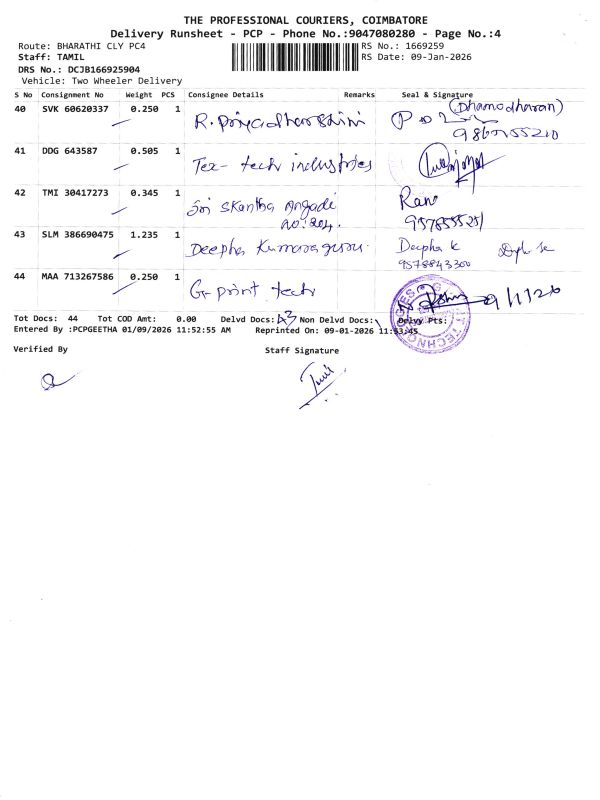 THE PROFESSIONAL COURIERS, COIMBATORE
Delivery Runsheet - PCP - Phone No.:9047080280 - Page No.:4
Route: BHARATHI CLY PC4
RS No.: 1669259
Staff: TAMIL
RS Date: 09-Jan-2026
DRS No.: DCJB166925904
Vehicle: Two Wheeler Delivery
S No Consignment No Weight PCS Consignee Details Remarks Seal & Signature
40 SVK 60620337 0.250 1 R. Priyadharshini (Dhamodharan)
41 DDG 643587 0.505 1 Tex-tech industries
42 TMI 30417273 0.345 1 Sri Skantha Angadi Rani
no: 204.
43 SLM 386690475 1.235 1 Deepha Kumaraguru. Deepha K
9578843300
44 MAA 713267586 0.250 1 G-print tech 9/1/26
Tot Docs: 44 Tot COD Amt: 0.00 Delvd Docs: 43 Non Delvd Docs: 1 Delvd Pts:
Entered By :PCPGEETHA 01/09/2026 11:52:55 AM Reprinted On: 09-01-2026 11:53:45
Verified By Staff Signature